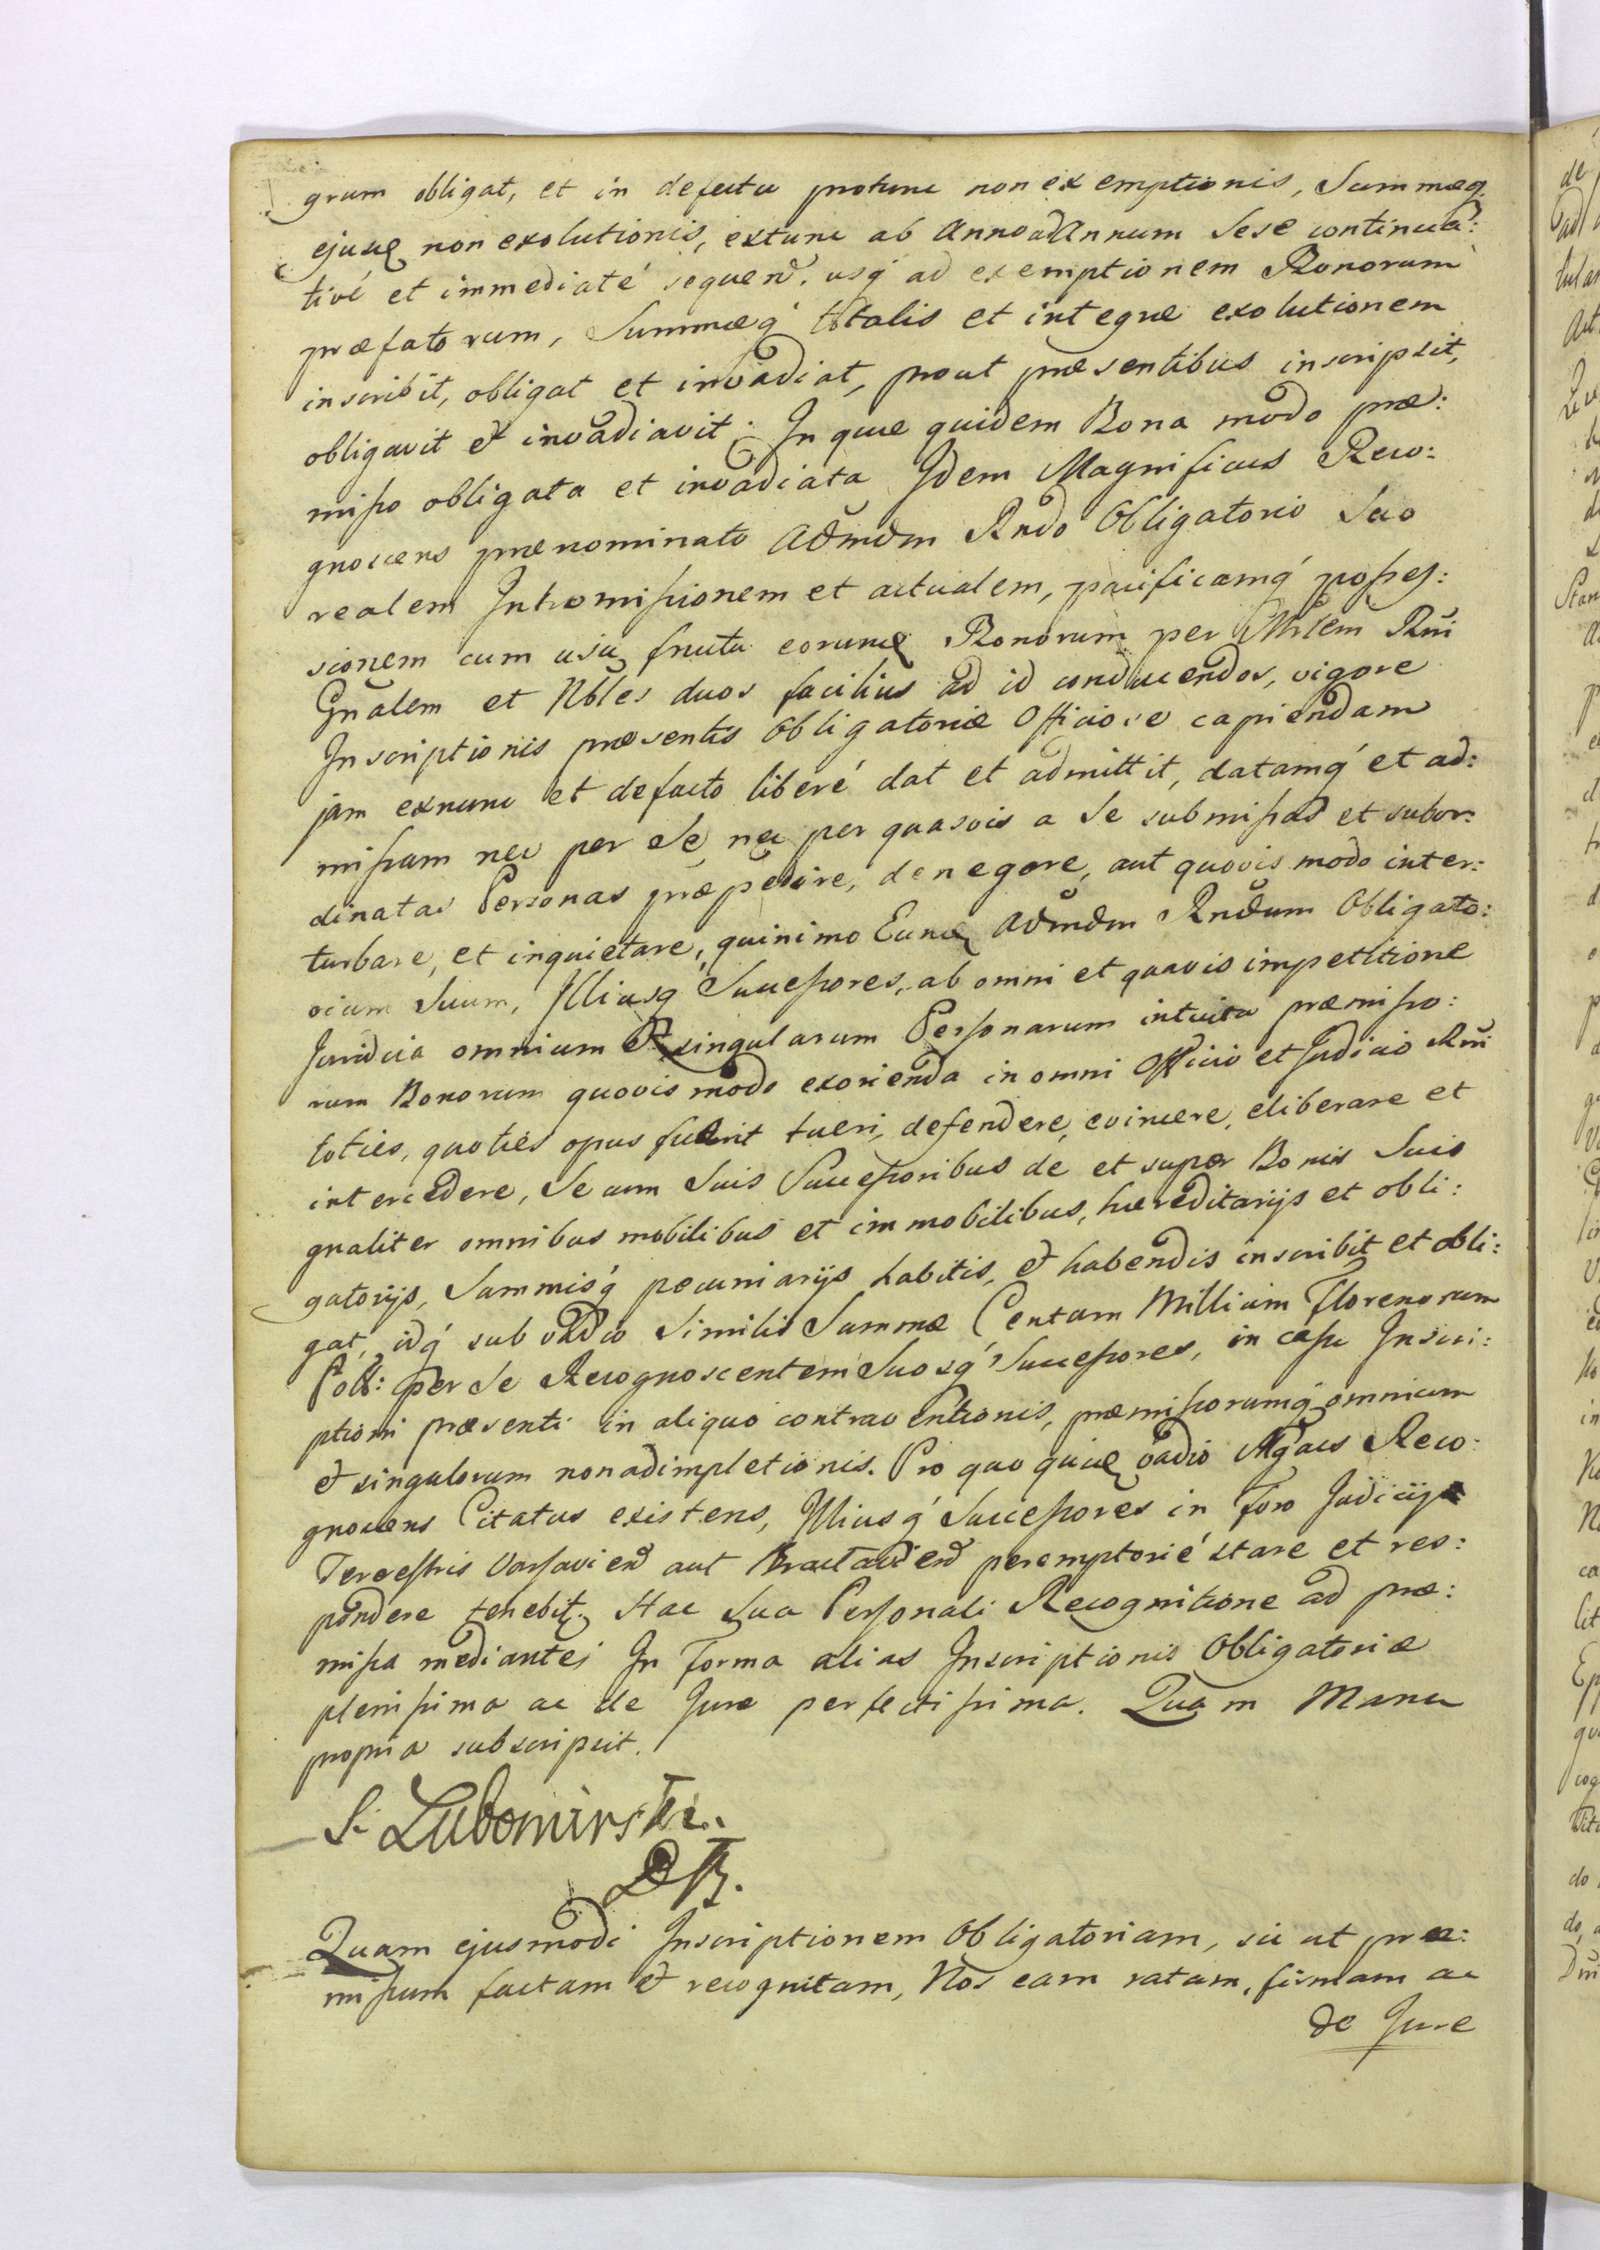 grum obligat, et in defectu protunc non exemptionis, Summæq
ejusq non exolutionis, extunc ab Anno ad Annum sese continua:
tivé et immediaté sequen. usq ad exemptionem Bonorum
præfatorum, Summæq totalis et integræ exolutionem
inscribit, obligat et invadiat, prout præsentibus inscripsit,
obligavit et invadiavit. In quæ quidem Bona modo præ:
misso obligata et invadiata Idem Magnificus Reco:
gnoscens prænominato Admdm Rndo Obligatorio Suo
realem Intromissionem et actualem, pacificamq posses:
sionem cum usu fructu eorum Bonorum per Mrlem Rni
Gnalem et Nbles duos facilius ad id conducendos, vigore
Inscriptionis præsentis Obligatoriæ Officiose capiendam
jam exnunc et defacto liberé dat et admittit, datamq et ad:
missam nec per Se, nec per quasvis a Se submissas et subor:
dinatas Personas præpedire, denegare, aut quovis modo inter:
turbare, et inquietare, quinimo Eund Admdm Rndum Obligato:
rium Suum, Illiusq Successores, ab omni et quavis impetitione
Juridica omnium et singularum Personarum intuitu præmisso:
rum Bonorum quovis modo exorienda in omni Officio et Judicio Rni
toties, quoties opus fuerit tueri, defendere, evincere, eliberare et
intercedere, Se cum Suis Successoribus de et super Bonis Suis
gnaliter omnibus mobilibus et immobilibus, hæreditarijs et obli:
gatorijs, Summisq pecuniarijs habitis, et habendis inscribit et obli:
gat, idq sub vadio Similis Summæ Centum Millium Florenorum
Poll: per Se Recognoscentem Suosq Successores, in casu Inscri:
ptioni præsenti in aliquo contraventionis, præmissorumq omnium
et singulorum nonadimpletionis. Pro quo quid vadio Mgcus Reco:
gnoscens Citatus existens, Illiusq Successores in Foro Judicij
Terrestris Varsavien aut peremptorié stare et res:
pondere tenebit. Hac Sua Personali Recognitione ad præ:
missa mediante; In Forma alias Inscriptionis Obligatoriæ
plenissima ac de Jure perfectissima. Quam Manu
propria subscripsit.
S. Lubomirski.
Quam ejusmodi Inscriptionem Obligatoriam, sic ut præ:
missum factam et recognitam, Nos eam ratam, firmam ac
de Jure